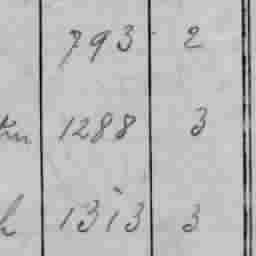 793 2
1288 3
1313 3